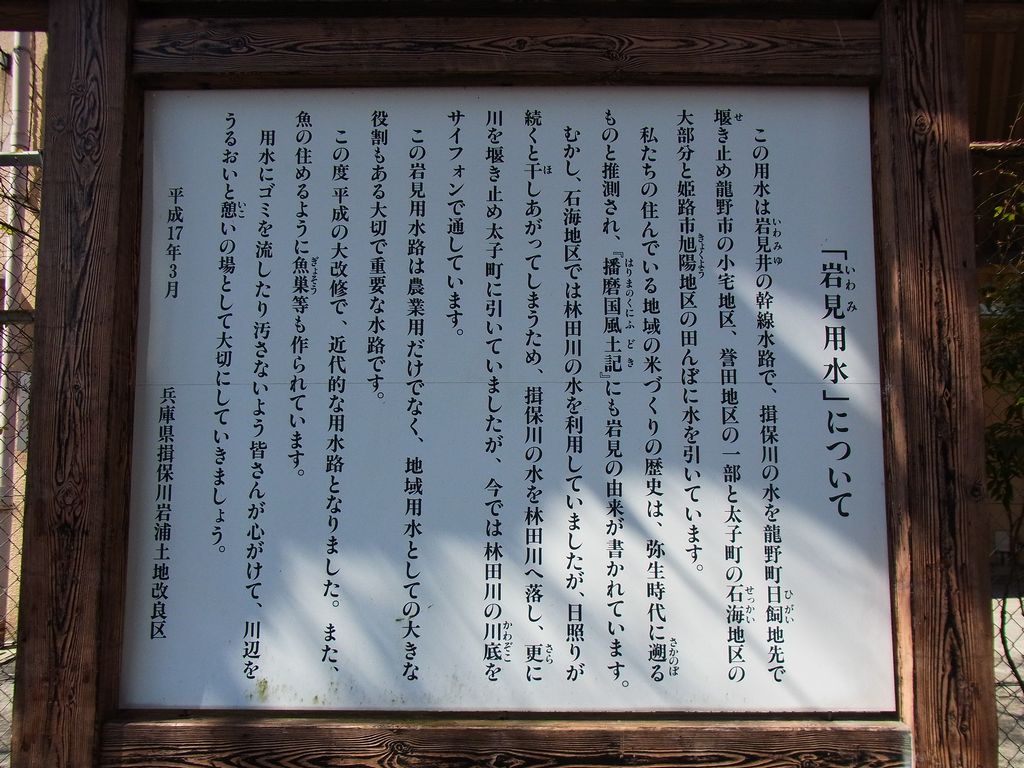 「岩見用水」について
この用水は岩見井の幹線水路で、揖保川の水を龍野町日飼地先で
堰き止め龍野市の小宅地区、誉田地区の一部と太子町の石海地区の
大部分と姫路市旭陽地区の田んぼに水を引いています。
私たちの住んでいる地域の米づくりの歴史は、弥生時代に遡る
ものと推測され、『播磨国風土記』にも岩見の由来が書かれています。
むかし、石海地区では林田川の水を利用していましたが、日照りが
続くと干しあがってしまうため、揖保川の水を林田川へ落し、更に
川を堰き止め太子町に引いていましたが、今では林田川の川底を
サイフォンで通しています。
この岩見用水路は農業用だけでなく、地域用水としての大きな
役割もある大切で重要な水路です。
この度平成の大改修で、近代的な用水路となりました。また、
魚の住めるように魚巣等も作られています。
用水にゴミを流したり汚さないよう皆さんが心がけて、川辺を
うるおいと憩いの場として大切にしていきましょう。
平成17年3月
兵庫県揖保川岩浦土地改良区